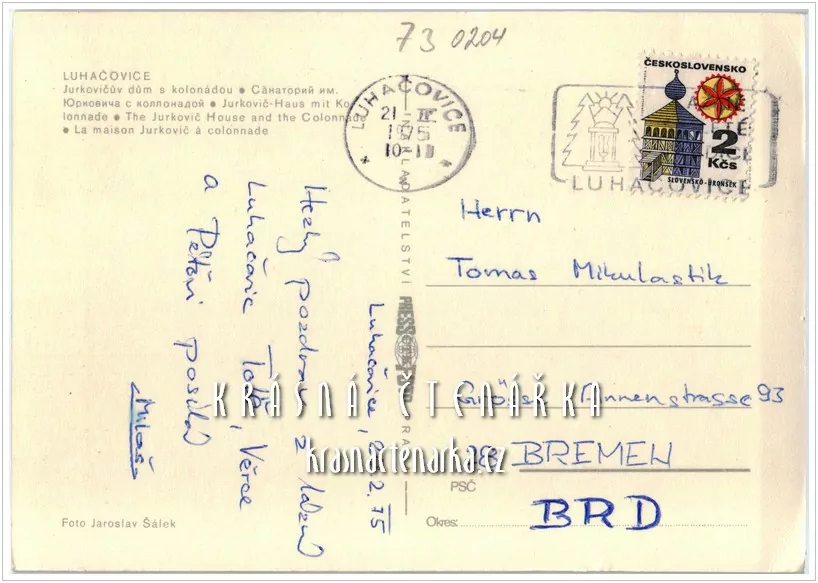 73 0204
LUHAČOVICE
Jurkovičův dům s kolonádou • Санаторий им.
Юрковича с колпонадой • Jurkovič-Haus mit Ko-
lonnade • The Jurkovič House and the Colonnade
• La maison Jurkovič à colonnade
LUHAČOVICE
21 IV.
1975
10-11
LUHAČOVICE
ČESKOSLOVENSKO
2
Kčs
SLOVENSKO-HRONSEK
NAKLADATELSTVÍ
Luhačovice, 2.75
Hezký pozdrav z lázní
Luhačovic Tobě, Věrce
a posílá
Miloš
Herrn
Tomas Mikulastik
Annenstrasse 93
28 BREMEN
PSČ
Okres:
BRD
KRÁSNÁ ČTENÁŘKA
krasnactenarka.cz
Foto Jaroslav Šálek